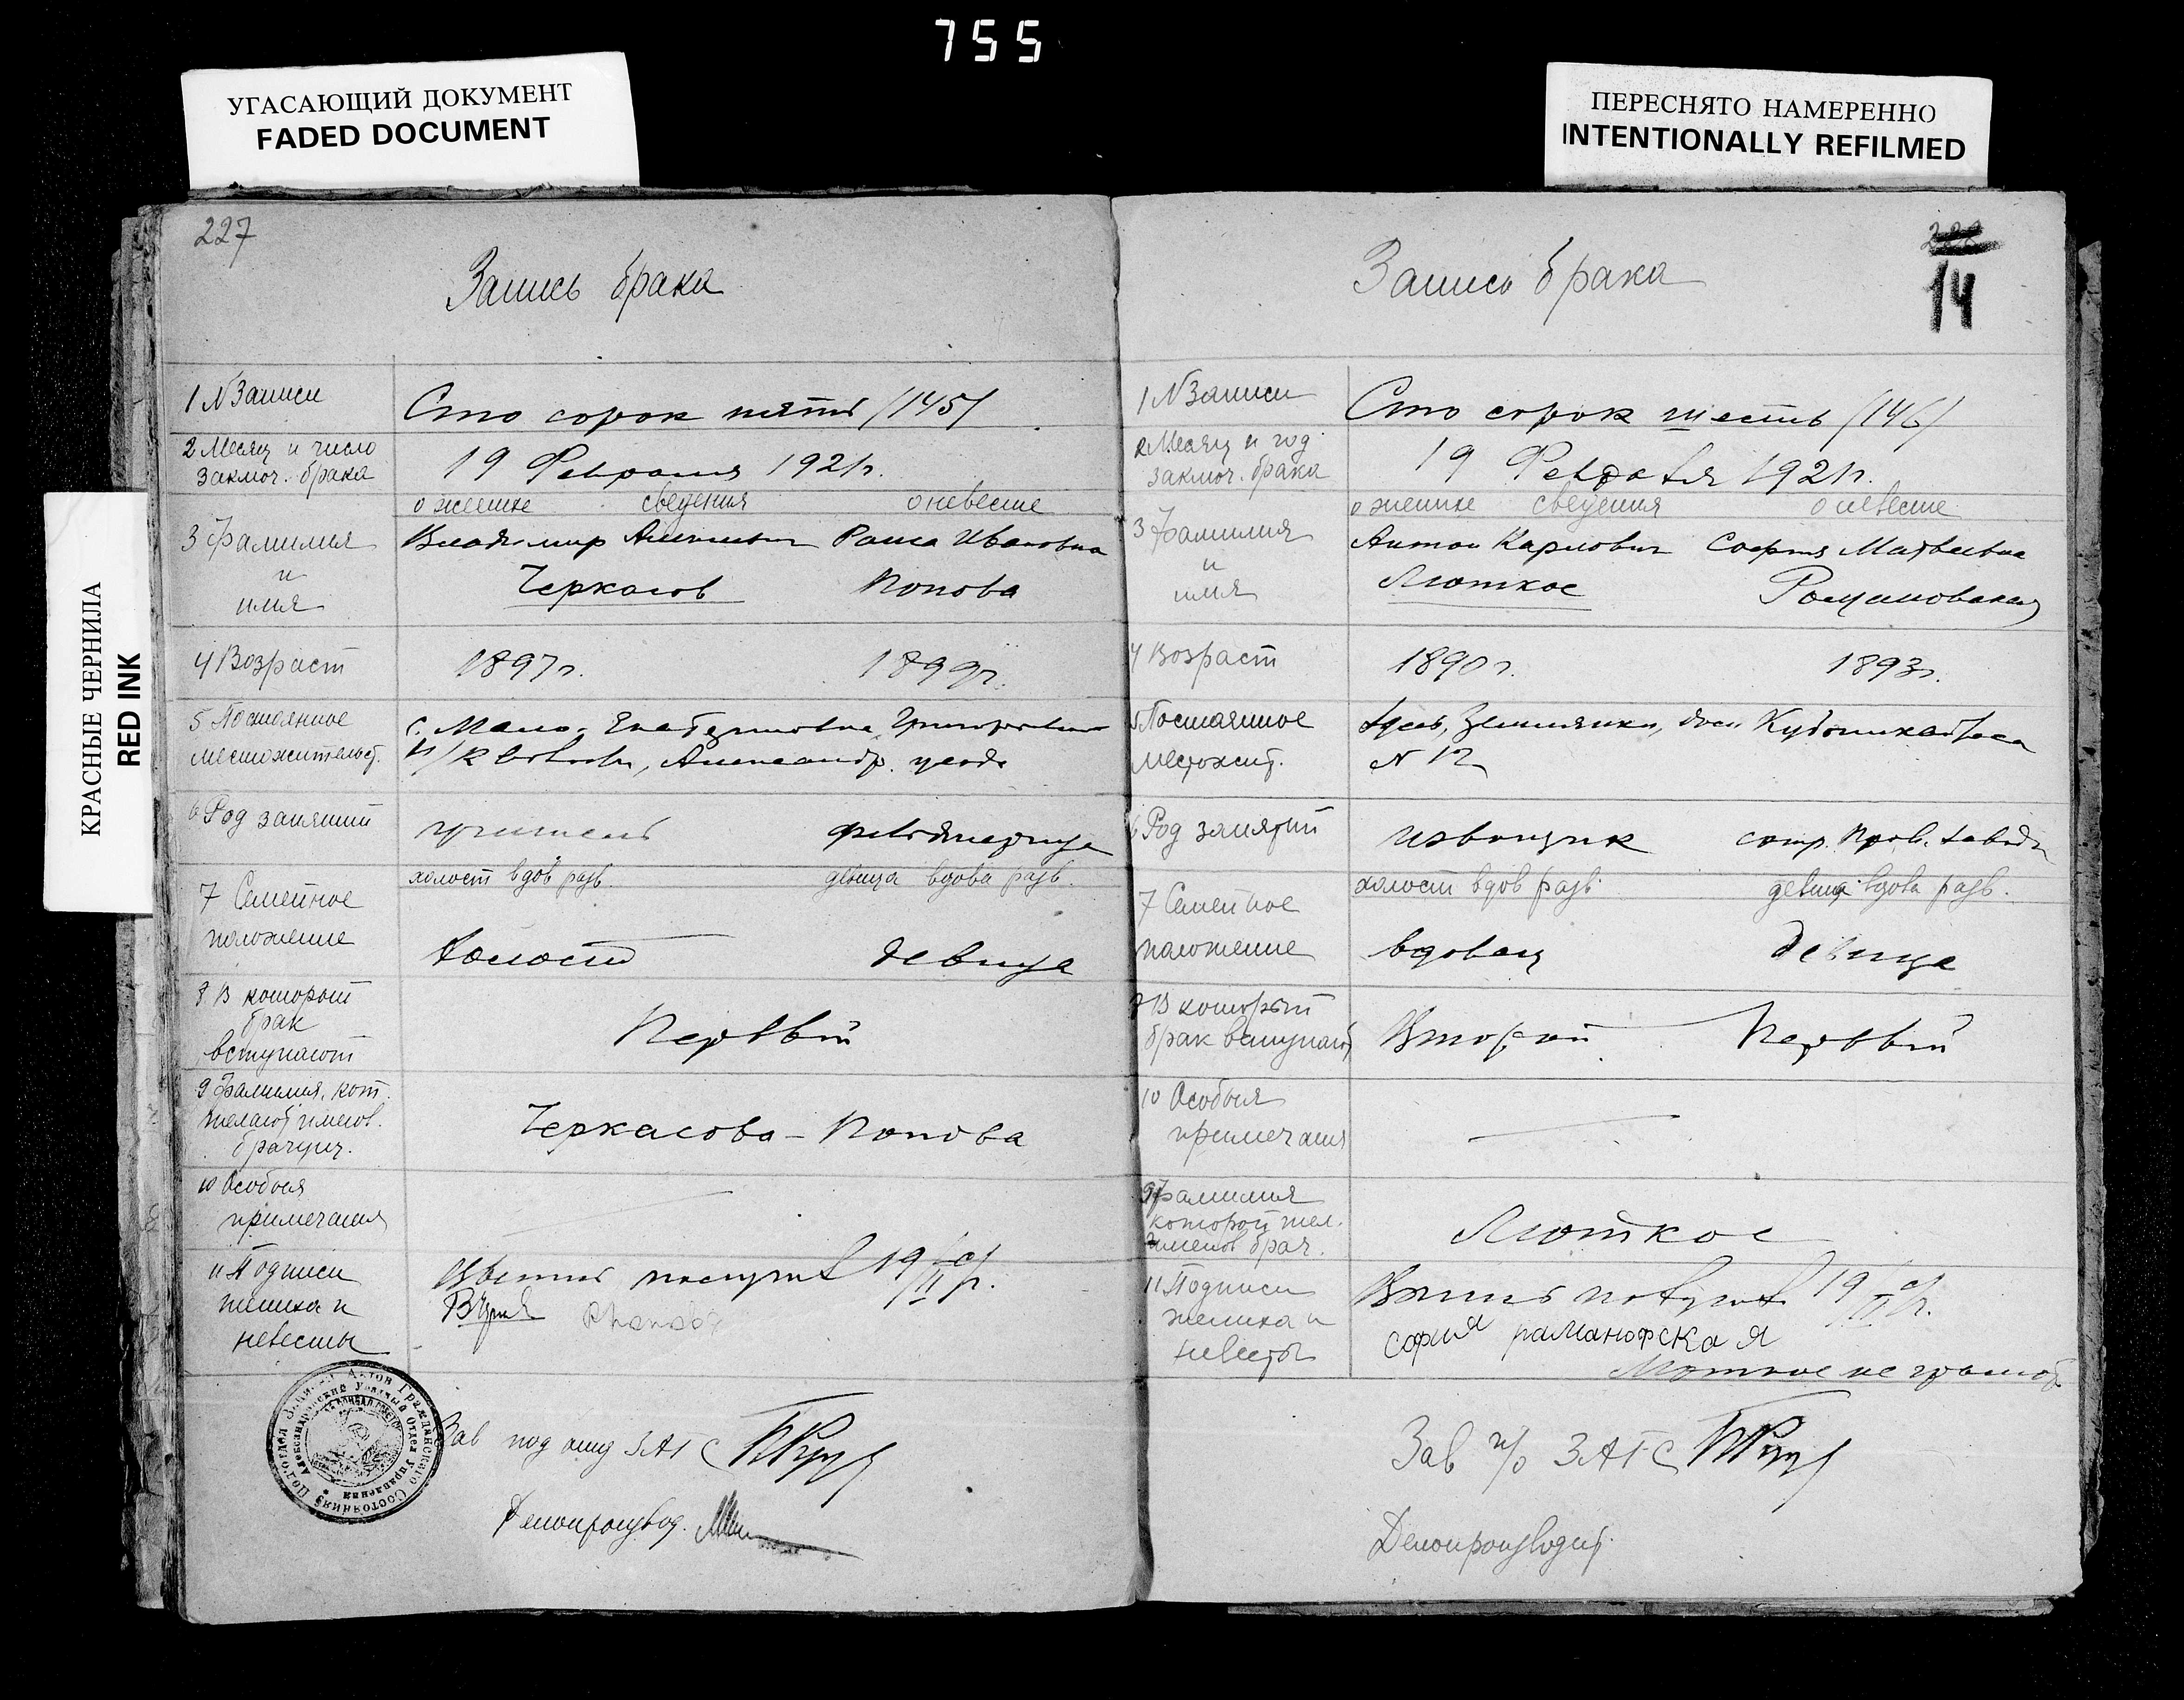 755
УГАСАЮЩИЙ ДОКУМЕНТ
FADED DOCUMENT
ПЕРЕСНЯТО НАМЕРЕННО
INTENTIONALLY REFILMED
КРАСНЫЕ ЧЕРНИЛА
RED INK
227
Запись брака
1 N Записи
Сто сорок пять /145/
2 Месяц и число
заключ. брака
19 Февраля 1921г.
о женихе сведения о невесте
3 Фамилия
и
имя
Владимир Раиса Ивановна
Черкасов Попова
4 Возраст
1897г. 1899г.
5 Постоянное
местожительст.
с. Мало-
Александр. уезда
6 Род занятий
учитель фельдшерица
холост вдов разв. девица вдова разв.
7 Семейное
положение
Холост девица
8 В которой
брак
вступают
Первый
9 Фамилия, кот.
желают именов.
брачущ.
Черкасова-Попова
10 Особыя
примечания
11 Подписи
жениха и
невесты
получил 19/II 21г.
РПопова
Подотдел Записи Актов Гражданского Состояния
Зав под отд ЗАГС
Делопроизвод.
14
Запись брака
1 N Записи
Сто сорок шесть /146/
2 Месяц и год
заключ. брака
19 Февраля 1921г.
о женихе сведения о невесте
3 Фамилия
и
имя
Антон Карлович София Матвеевна
Люткос Романовская
4 Возраст
1890г. 1893г.
5 Постоянное
местожит.
здесь, Землянки, дом
N 12
6 Род занятий
извощик сотр. Пров. завода
холост вдов разв. девица вдова разв.
7 Семейное
положение
вдовец девица
8 В который
брак вступают
Второй Первый
10 Особыя
примечания
9 Фамилия
которой жел.
именов брач.
Люткос
11 Подписи
жениха и
невесты
получил 19/II 21г.
софия раманофская
Люткос не грамот
Зав п/о ЗАГС
Делопроизводит.